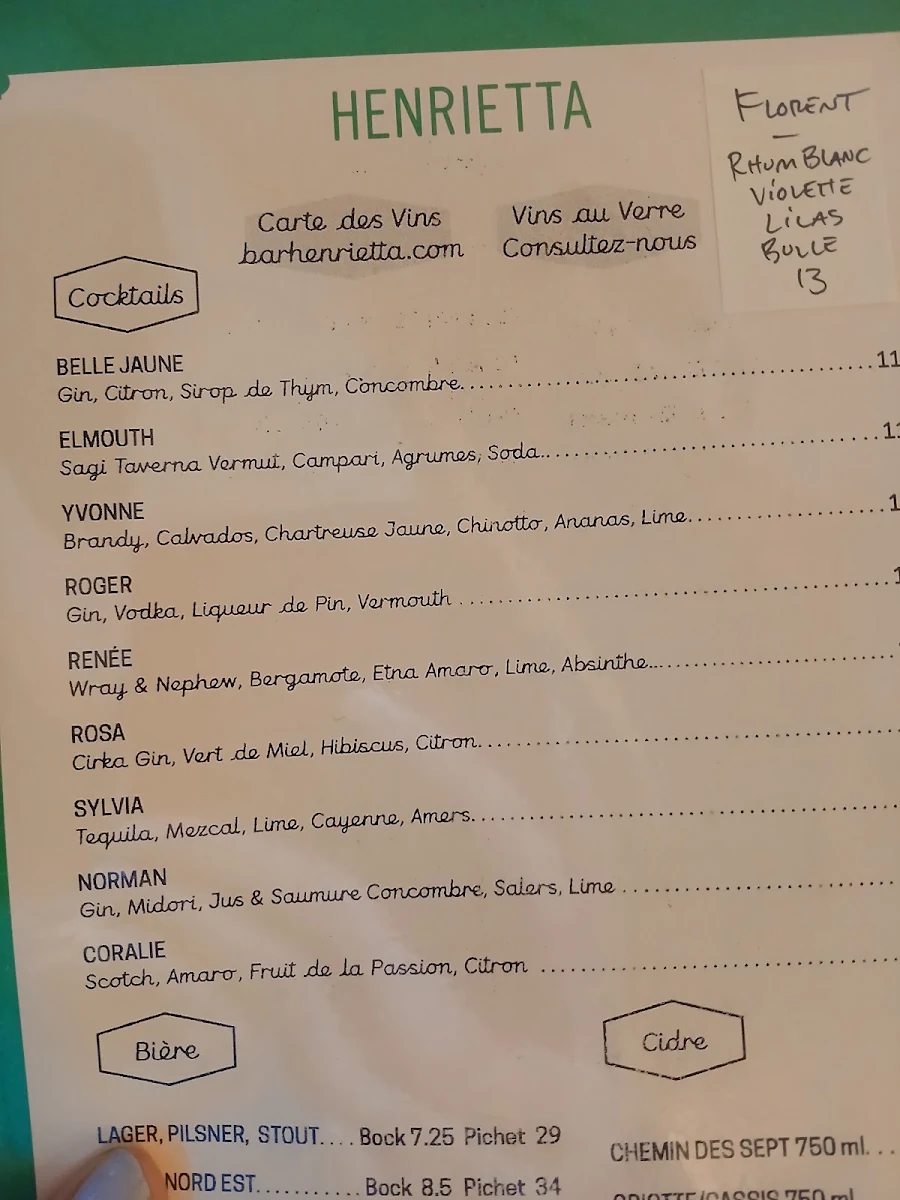 HENRIETTA
FLORENT
—
RHUM BLANC
VIOLETTE
LILAS
BULLE
13
Carte des Vins
barhenrietta.com
Vins au Verre
Consultez-nous
Cocktails
BELLE JAUNE
Gin, Citron, Sirop de Thym, Concombre..............................11
ELMOUTH
Sagi Taverna Vermut, Campari, Agrumes, Soda..............................
YVONNE
Brandy, Calvados, Chartreuse Jaune, Chinotto, Ananas, Lime....................
ROGER
Gin, Vodka, Liqueur de Pin, Vermouth ..............................
RENÉE
Wray & Nephew, Bergamote, Etna Amaro, Lime, Absinthe.........................
ROSA
Cirka Gin, Vert de Miel, Hibiscus, Citron..............................
SYLVIA
Tequila, Mezcal, Lime, Cayenne, Amers..............................
NORMAN
Gin, Midori, Jus & Saumure Concombre, Salers, Lime .........................
CORALIE
Scotch, Amaro, Fruit de la Passion, Citron ..............................
Bière
LAGER, PILSNER, STOUT.... Bock 7.25 Pichet 29
NORD EST........... Bock 8.5 Pichet 34
Cidre
CHEMIN DES SEPT 750 ml...